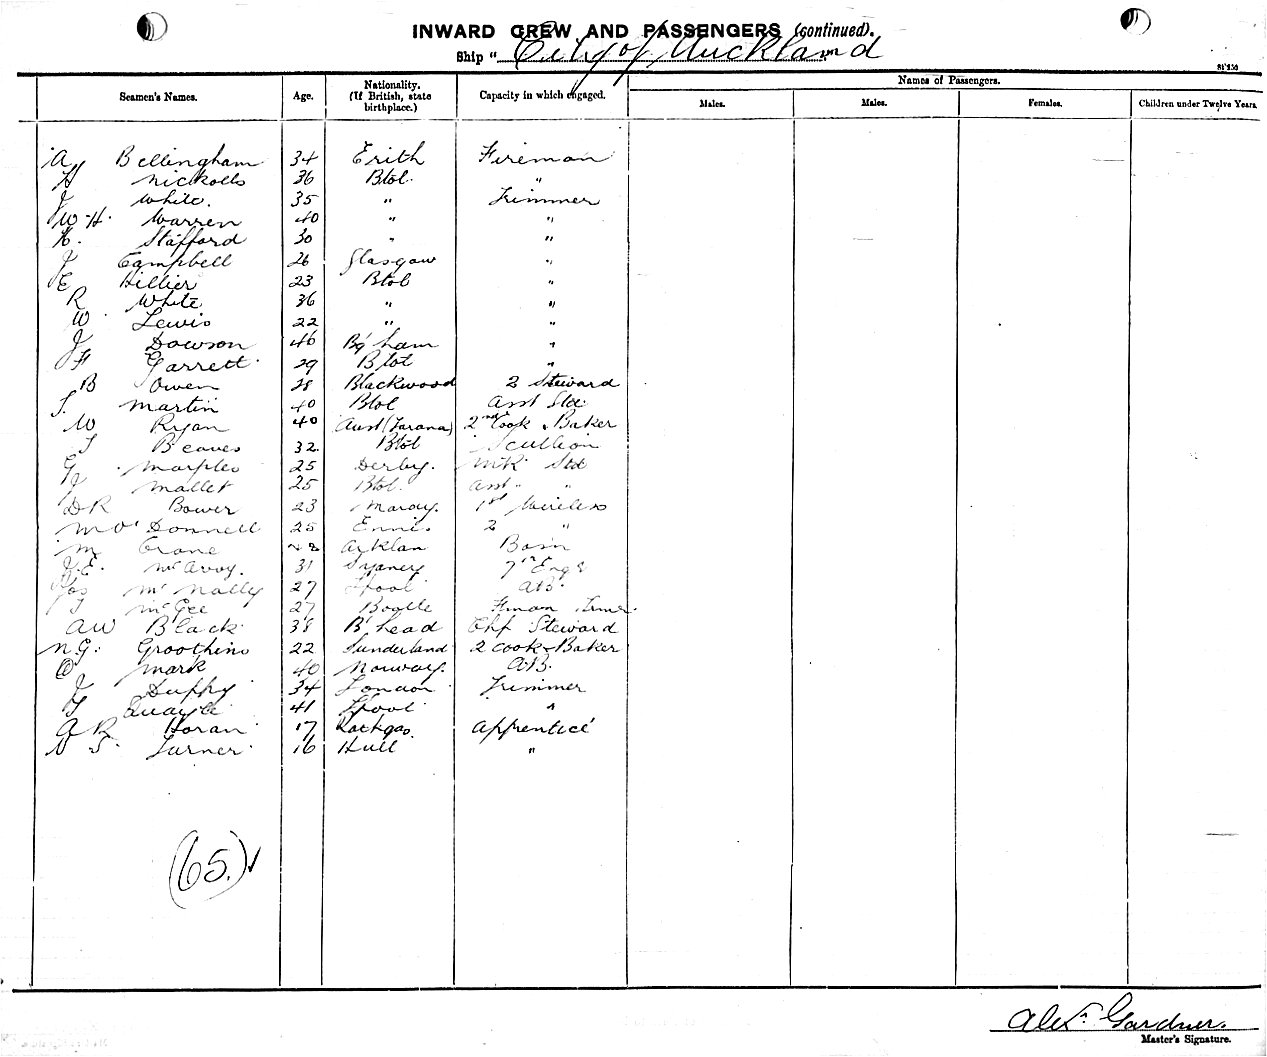 INWARD CREW AND PASSENGERS (continued).
Ship " City of Auckland
Names of Passengers.
Seamen's Names. Age. Nationality. (If British, state birthplace.) Capacity in which engaged. Males. Males. Females. Children under Twelve Years.
A Bellingham 34 Erith Fireman
H Nickolls 36 Btol. "
J White. 35 " Trimmer
W. H. Warren 40 " "
K. Stafford 30 " "
J Campbell 26 Glasgow "
E Hillier 23 Btol "
R White 36 " "
W Lewis 22 " "
J Dowson 46 B'ham "
F Garrett 29 Btol "
B Owen 28 Blackwood 2 Steward
S. Martin 40 Btol Asst Std.
W Ryan 40 Aust (Tarana) 2nd Cook & Baker
T Beaves 32 Btol Scullion
G Marples 25 Derby. Std
J Mallet 25 Btol. Asst "
D R Bower 23 1st Wireless
M O'Donnell 25 Ennis. 2 "
M Crone Arklan Bosn
J. E. McAvoy. 31 Sydney 7th Engr
Jos McNally 27 L'pool A.B.
T McGee 27 Bootle Fman Trmr
A W Black 38 B'head Chf Steward
N G. Groothino 22 Sunderland 2 Cook & Baker
O Mark 40 Norway. A.B.
J Duffy 34 London Trimmer
T Quayle 41 L'pool "
A R Horan 17 Apprentice
S. Turner 16 Hull "
(65.) ✓
Alexr. Gardner.
Master's Signature.